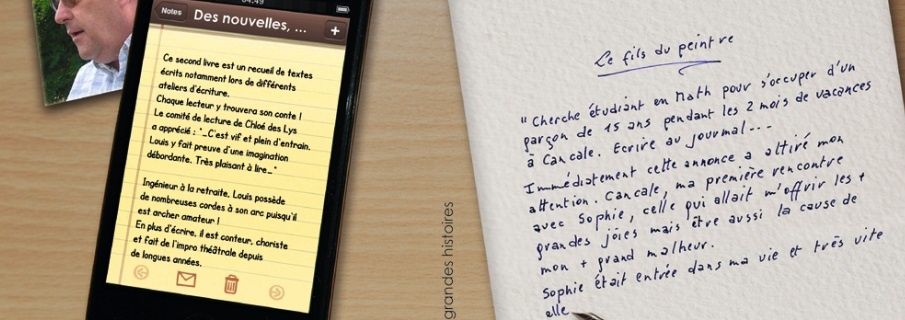 04:49
Notes
Des nouvelles, ...
+
Ce second livre est un recueil de textes
écrits notamment lors de différents
ateliers d'écriture.
Chaque lecteur y trouvera son conte !
Le comité de lecture de Chloé des Lys
a apprécié : "...C'est vif et plein d'entrain.
Louis y fait preuve d'une imagination
débordante. Très plaisant à lire..."
Ingénieur à la retraite, Louis possède
de nombreuses cordes à son arc puisqu'il
est archer amateur !
En plus d'écrire, il est conteur, choriste
et fait de l'impro théâtrale depuis
de longues années.
grandes histoires
Le fils du peintre
"Cherche étudiant en Math pour s'occuper d'un
garçon de 15 ans pendant les 2 mois de vacances
à Cancale. Ecrire au journal...
Immédiatement cette annonce a attiré mon
attention. Cancale, ma première rencontre
avec Sophie, celle qui allait m'offrir les +
grandes joies mais être aussi la cause de
mon + grand malheur.
Sophie était entrée dans ma vie et très vite
elle